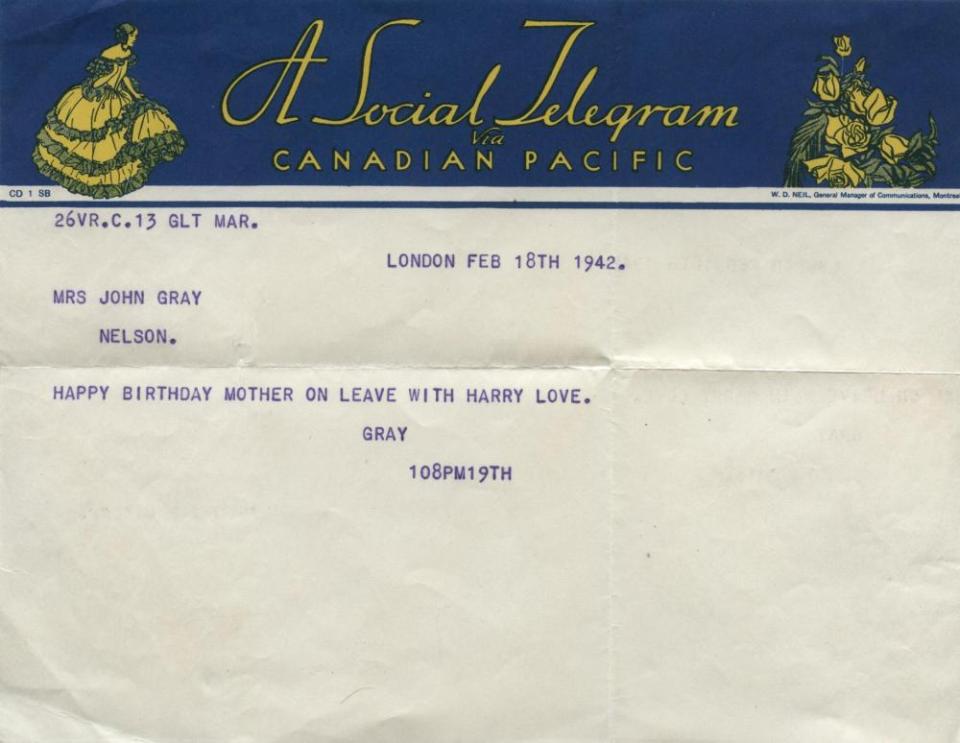 A Social Telegram
Via
CANADIAN PACIFIC
CD 1 SB
W. D. NEIL, General Manager of Communications, Montreal
26VR.C.13 GLT MAR.
LONDON FEB 18TH 1942.
MRS JOHN GRAY
NELSON.
HAPPY BIRTHDAY MOTHER ON LEAVE WITH HARRY LOVE.
GRAY
108PM19TH